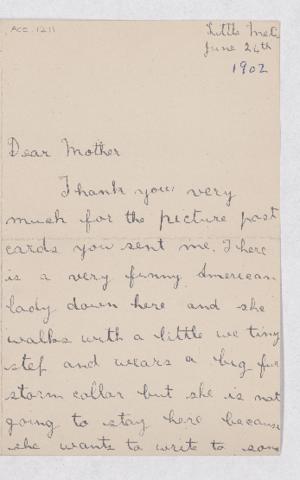 ACC. 1211
Little Met.
June 24th
1902
Dear Mother
Thank you very
much for the picture post
cards you sent me. There
is a very funny American
lady down here and she
walks with a little we tiny
step and wears a big fur
storm collar but she is not
going to stay here because
she wants to write to some